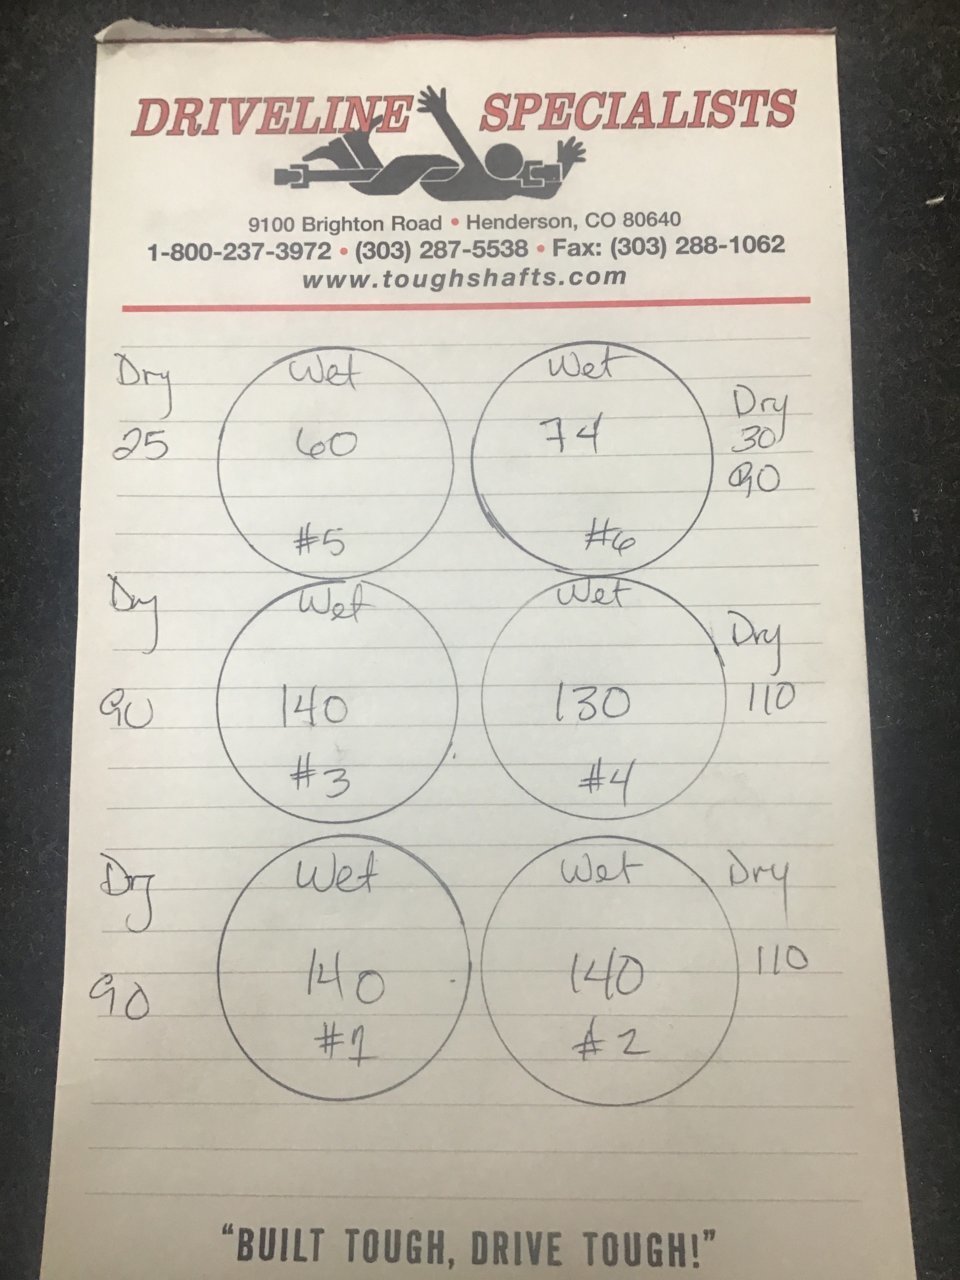 DRIVELINE SPECIALISTS
9100 Brighton Road • Henderson, CO 80640
1-800-237-3972 • (303) 287-5538 • Fax: (303) 288-1062
www.toughshafts.com
Dry Wet Wet Dry
25 60 74 30
90
#5 #6
Dry Wet Wet Dry
90 140 130 110
#3 #4
Dry Wet Wet Dry
90 140 140 110
#1 #2
"BUILT TOUGH, DRIVE TOUGH!"